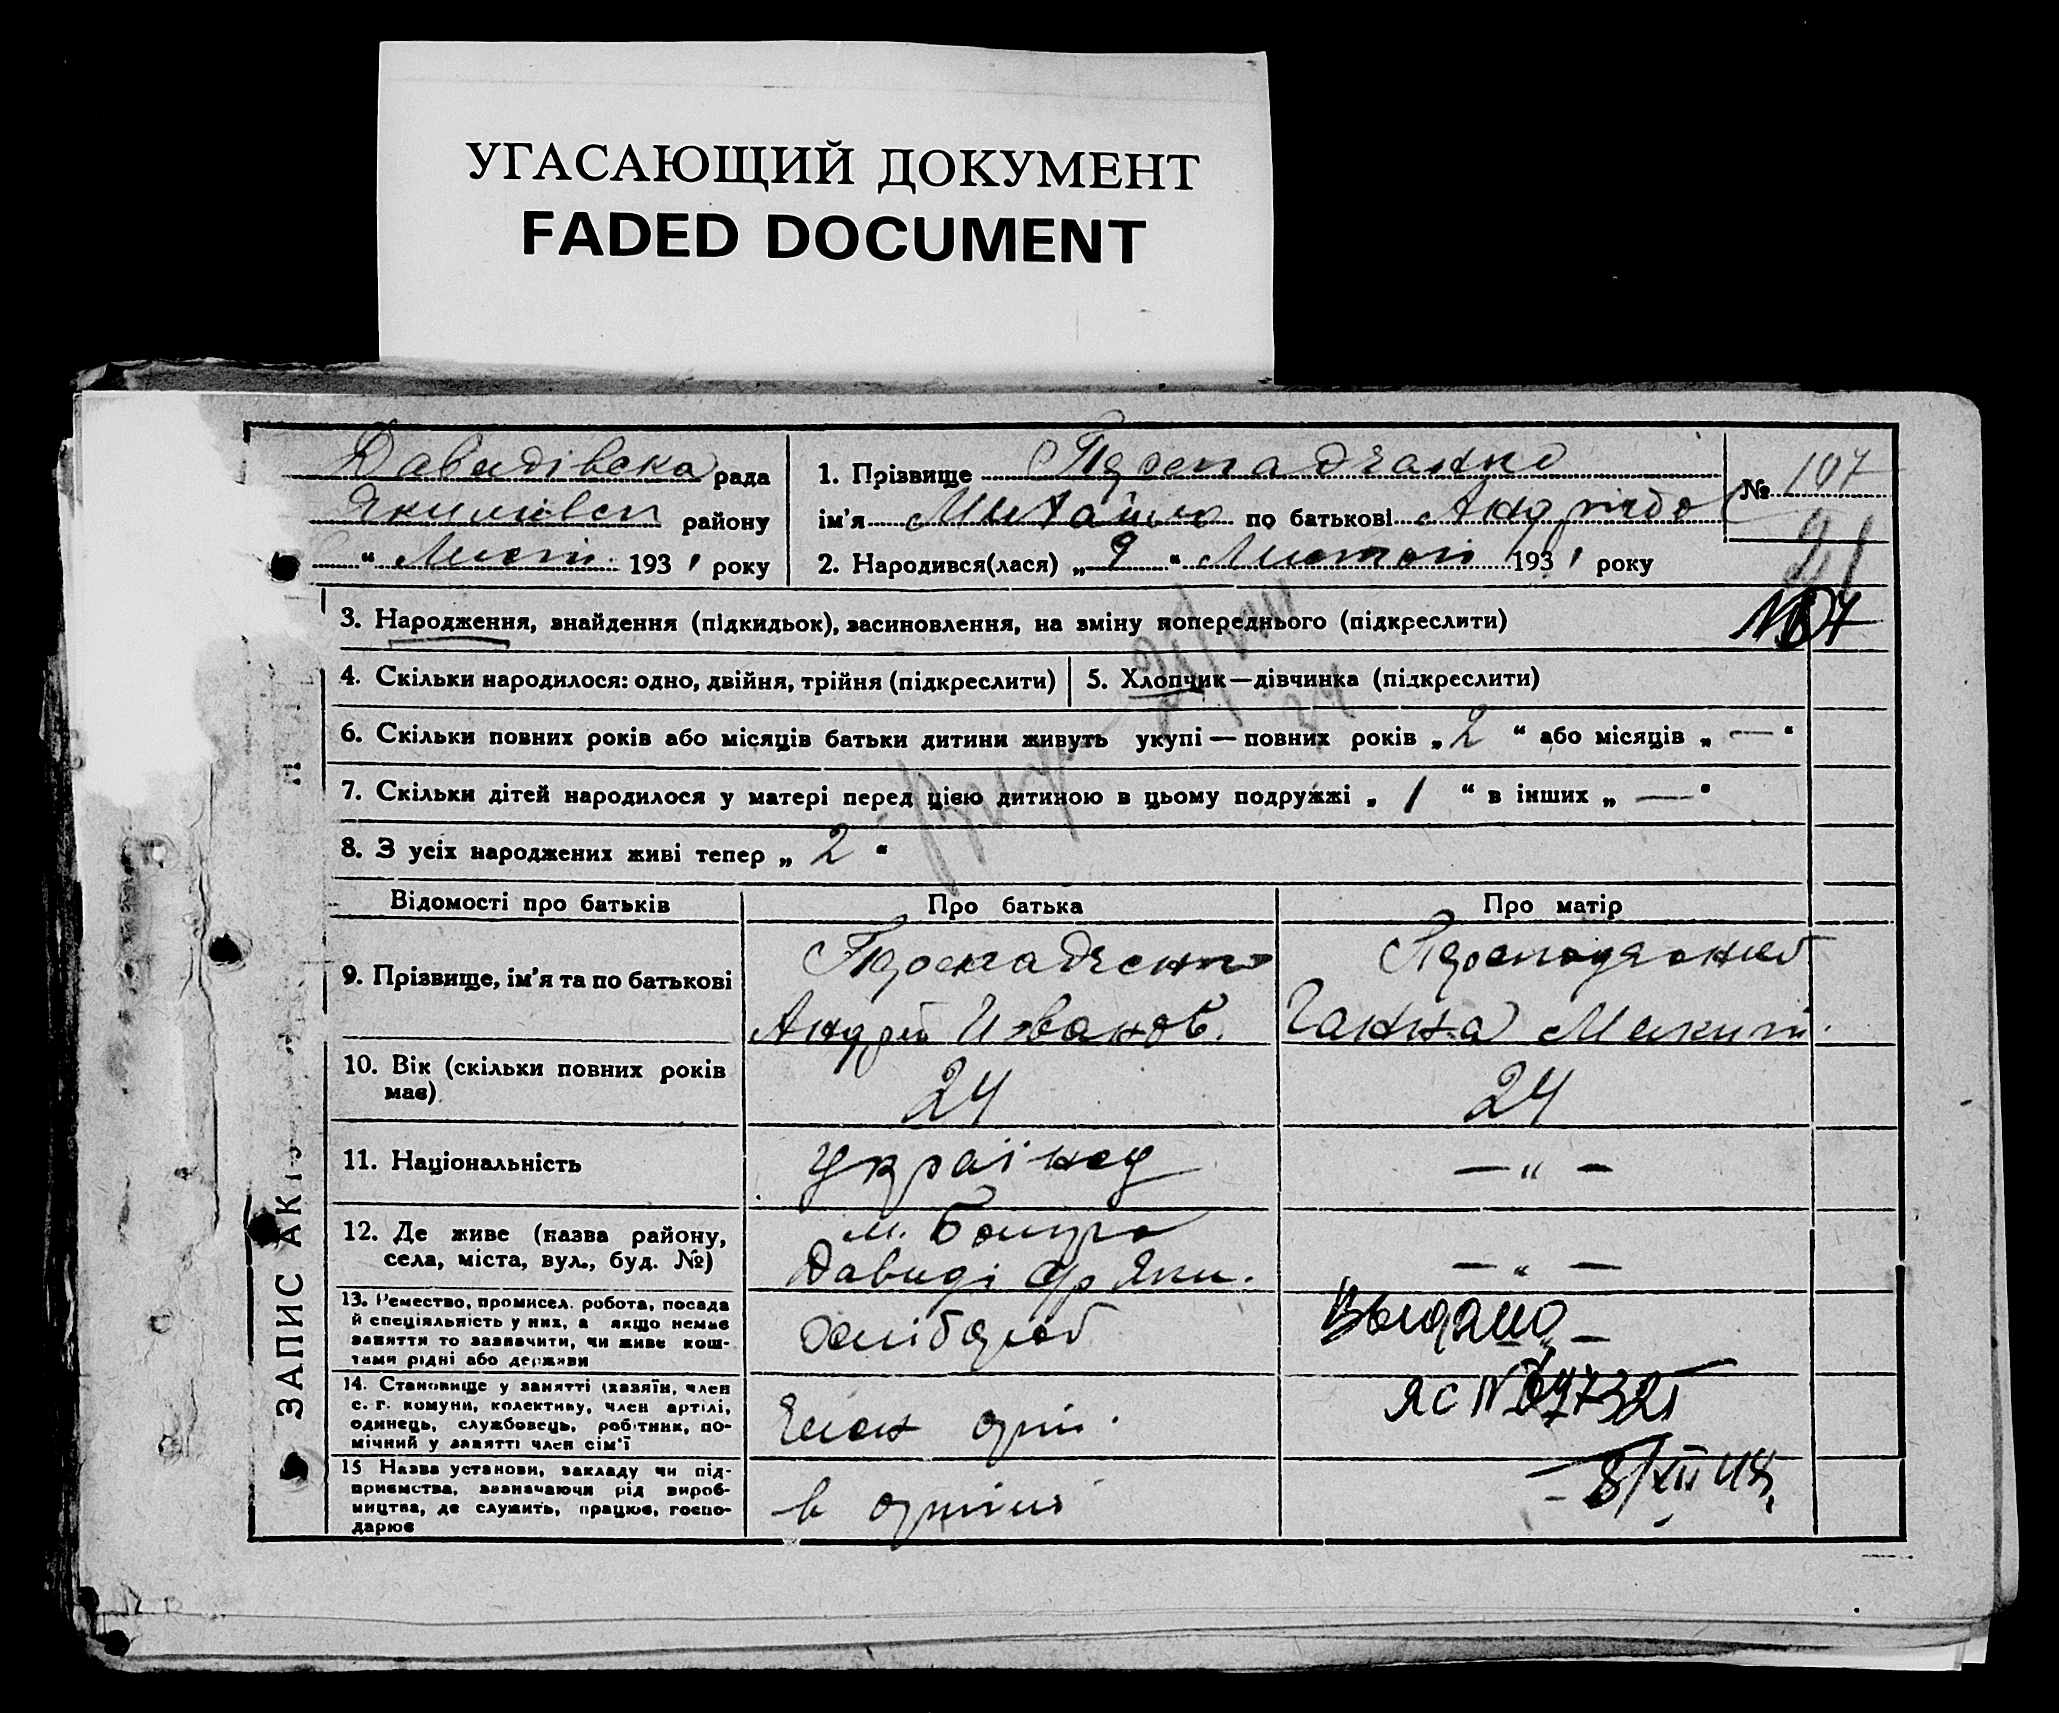 УГАСАЮЩИЙ ДОКУМЕНТ
FADED DOCUMENT
Давидівска рада
району
" 193 1 року
1. Прізвище
ім'я Михайло по батькові
2. Народився(лася) „ 9 " 193 1 року
№ 107
21
N 107
3. Народження, знайдення (підкидьок), засиновлення, на зміну попереднього (підкреслити)
4. Скільки народилося: одно, двійня, трійня (підкреслити)
5. Хлопчик—дівчинка (підкреслити)
6. Скільки повних років або місяців батьки дитини живуть укупі — повних років „ 2 " або місяців „ — "
7. Скільки дітей народилося у матері перед цією дитиною в цьому подружжі „ 1 " в інших „ — "
8. З усіх народжених живі тепер „ 2 "
ЗАПИС АКТ
Відомості про батьків
Про батька
Про матір
9. Прізвище, ім'я та по батькові
Андрій Иванов.
Ганна Микит.
10. Вік (скільки повних років має)
24
24
11. Національність
українец
— " —
12. Де живе (назва району,
села, міста, вул., буд. №)
— " —
13. Ремество, промисел. робота, посада
й спеціяльність у них, а якщо немає
заняття то зазначити, чи живе кош-
тами рідні або держави
хлібороб
Выдано
14. Становище у занятті (хазяїн, член
с.-г. комуни, колективу, член артілі,
одинець, службовець, робітник, по-
мічний у занятті член сім'ї
Член арт.
ЯС N 097321
15 Назва установи, закладу чи під-
приємства, зазначаючи рід вироб-
ництва, де служить, працює, госпо-
дарює
в артілі
8/XII 48.